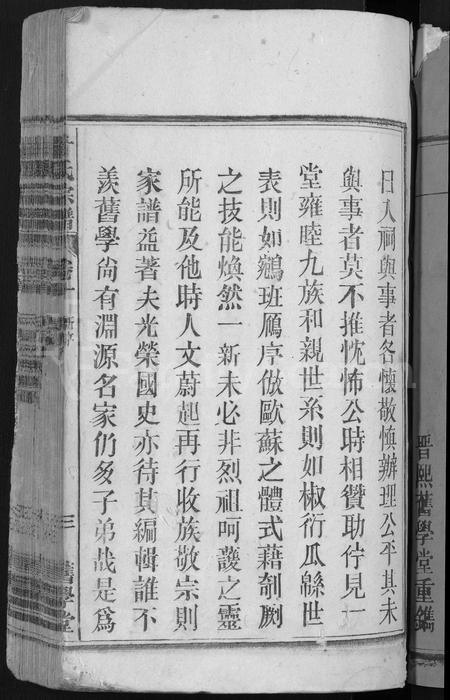 晋熙舊學堂重鐫
日入祠與事者各懷敬慎辦理公平其未
與事者莫不推忱怖公時相贊助佇見一
堂雍睦九族和親世系則如椒衍瓜緜世
表則如鵷班鴈序倣歐蘇之體式藉剞劂
之技能煥然一新未必非烈祖呵護之靈
所能及他時人文蔚起再行收族敬宗則
家譜益著夫光榮國史亦待其編輯誰不
羡舊學尙有淵源名家仍多子弟哉是爲
氏宗譜
卷一
三
舊學堂